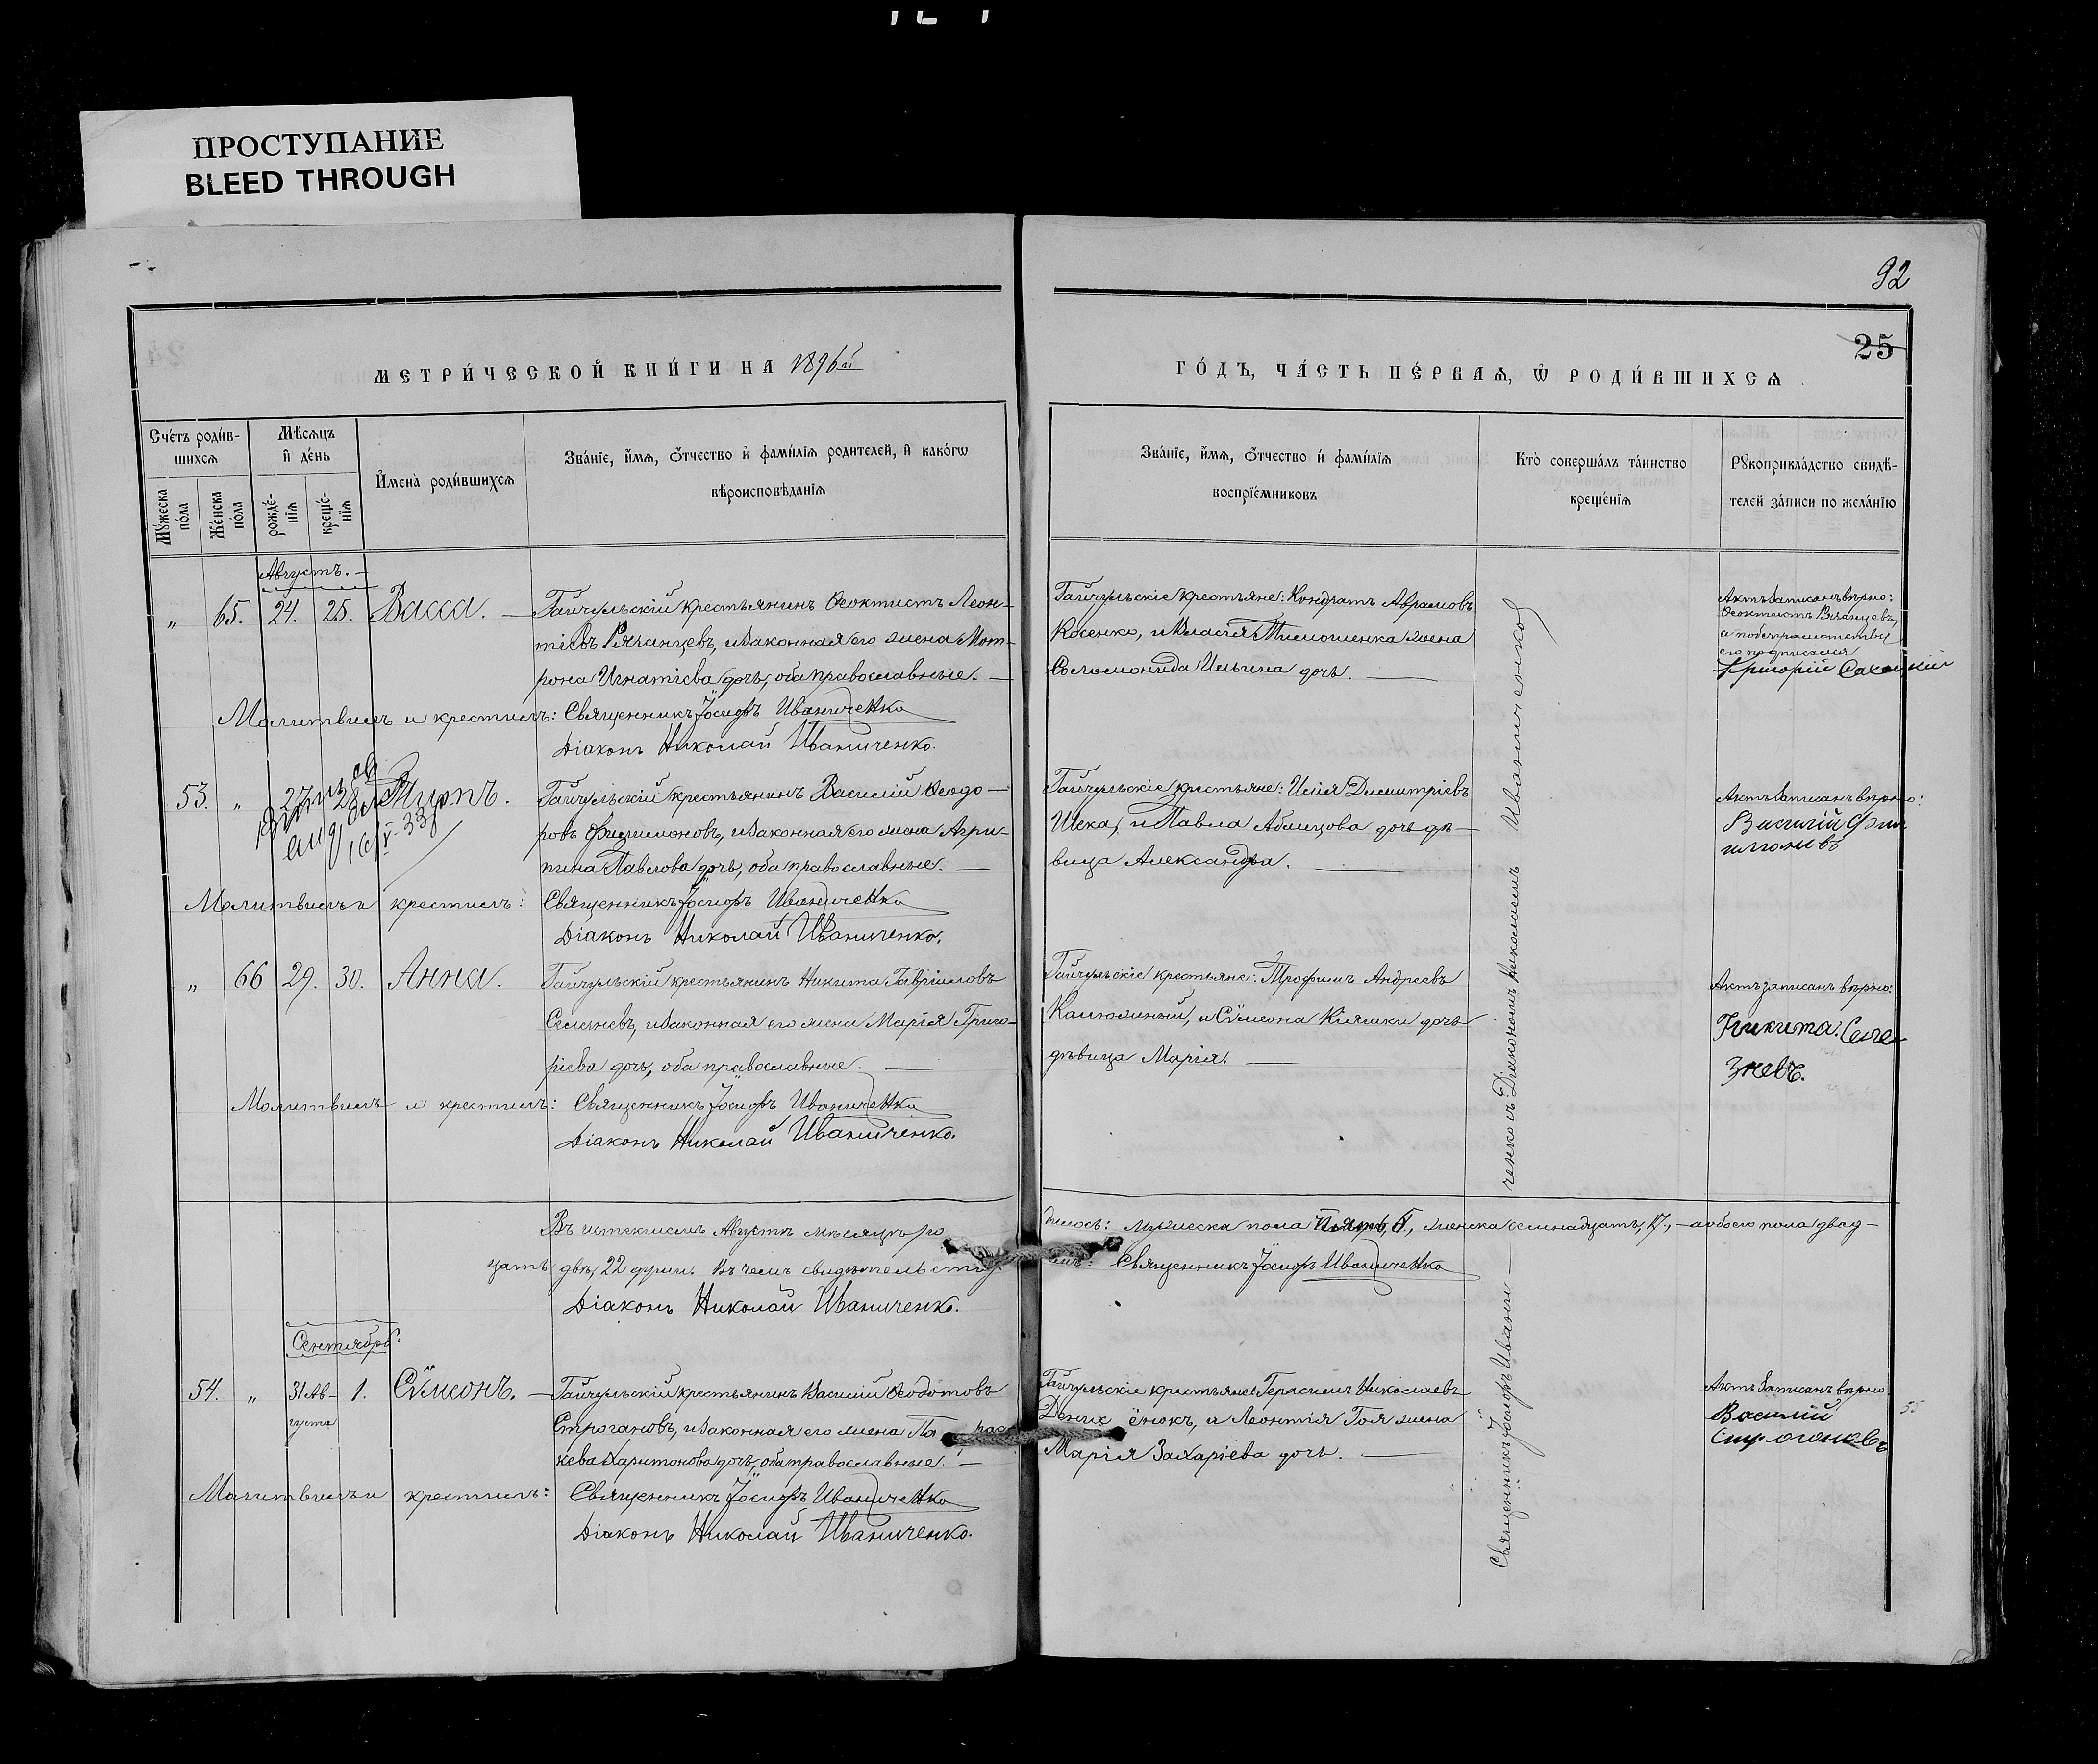 ПРОСТУПАНИЕ
BLEED THROUGH
92
25
МЕТРИ́ЧЕСКОЙ КНИ́ГИ НА 1896й
ГО́ДЪ, ЧА́СТЬ ПЕ́РВАѦ, Ѡ҆ РОДИ́ВШИХСѦ
Сче́тъ роди́в-
шихсѧ
Мꙋ́жеска по́ла
Же́нска по́ла
Мѣ́сѧцъ
и҆ де́нь
рожде́-
нїѧ
креще́-
нїѧ
И҆мена̀ роди́вшихсѧ
Зва́нїе, и҆́мѧ, ѻ҆́тчество и҆ фами́лїѧ родителей, и҆ како́гѡ
вѣроисповѣ́данїѧ
Зва́нїе, и҆́мѧ, ѻ҆́тчество и҆ фами́лїѧ
воспрїе́мниковъ
Кто̀ соверша́лъ та́инство
креще́нїѧ
Рꙋкоприкла́дство свидѣ́-
телей за́писи по жела́нїю
Августъ.
„ 65. 24. 25. Васса. — Гайчульскій крестьянинъ Ѳеоктистъ Леон-
тіевъ Рязанцевъ, и законная его жена Мот-
рона Игнатіева дочь, оба православные. —
Гайчульскіе крестьяне: Кондратъ Аврамовъ
Косенко, и Власія Тимошенка жена
Соломонида Ильина дочь. —
Актъ записанъ вѣрно:
Ѳеоктистъ Рязанцевъ,
а по безграмотству
его подписался
Григорій
Молитвилъ и крестилъ: Священникъ Іосифъ Иваниченко
Діаконъ Николай Иваниченко.
53. „ 27. 28.
16/V-33
Гайчульскій крестьянинъ Василій Ѳеодо-
ровъ Филимоновъ, и законная его жена Агри-
пина Павлова дочь, оба православные. —
Гайчульскіе крестьяне: Илія Димитріевъ
Шека, и Павла Аблицова дочь дѣ-
вица Александра. —
Актъ записанъ вѣрно:
Василій Фили
моновъ
Молитвилъ и крестилъ: Священникъ Іосифъ Иваниченко
Діаконъ Николай Иваниченко.
„ 66 29. 30. Анна. Гайчульскій крестьянинъ Никита Гавріиловъ
Селезневъ, и законная его жена Марія Григо-
ріева дочь, оба православные. —
Гайчульскіе крестьяне: Трофимъ Андреевъ
Калюжный, и Сѷмеона Кіяшки дочь
дѣвица Марія. —
Актъ записанъ вѣрно:
Никита Селе-
зневъ.
Молитвилъ и крестилъ: Священникъ Іосифъ Иваниченко
Діаконъ Николай Иваниченко.
Въ истекшемъ Августѣ мѣсяцѣ ро
дилось: мужеска пола пять, 5., женска семнадцать, 17., — а обоего пола двад-
цать двѣ, 22 души. Въ чемъ свидѣтельству
емъ: Священникъ Іосифъ Иваниченко
Діаконъ Николай Иваниченко.
Сентябрь:
54. „ 31 Ав- 1. Сѷмеонъ. — Гайчульскій крестьянинъ Василій Ѳеодотовъ
густа
Строгановъ, и законная его жена Па рас
кева Харитонова дочь, оба православные. —
Гайчульскіе крестьяне: Герасимъ Николаевъ
енокъ, и Леонтія Гоя жена
Марія Захаріева дочь. —
Актъ записанъ вѣрно
Василій
Строгановъ
Молитвилъ и крестилъ: Священникъ Іосифъ Иваниченко
Діаконъ Николай Иваниченко.
Священникъ Іосифъ Ивани—
ченко съ Діакономъ Николаемъ Иваниченко